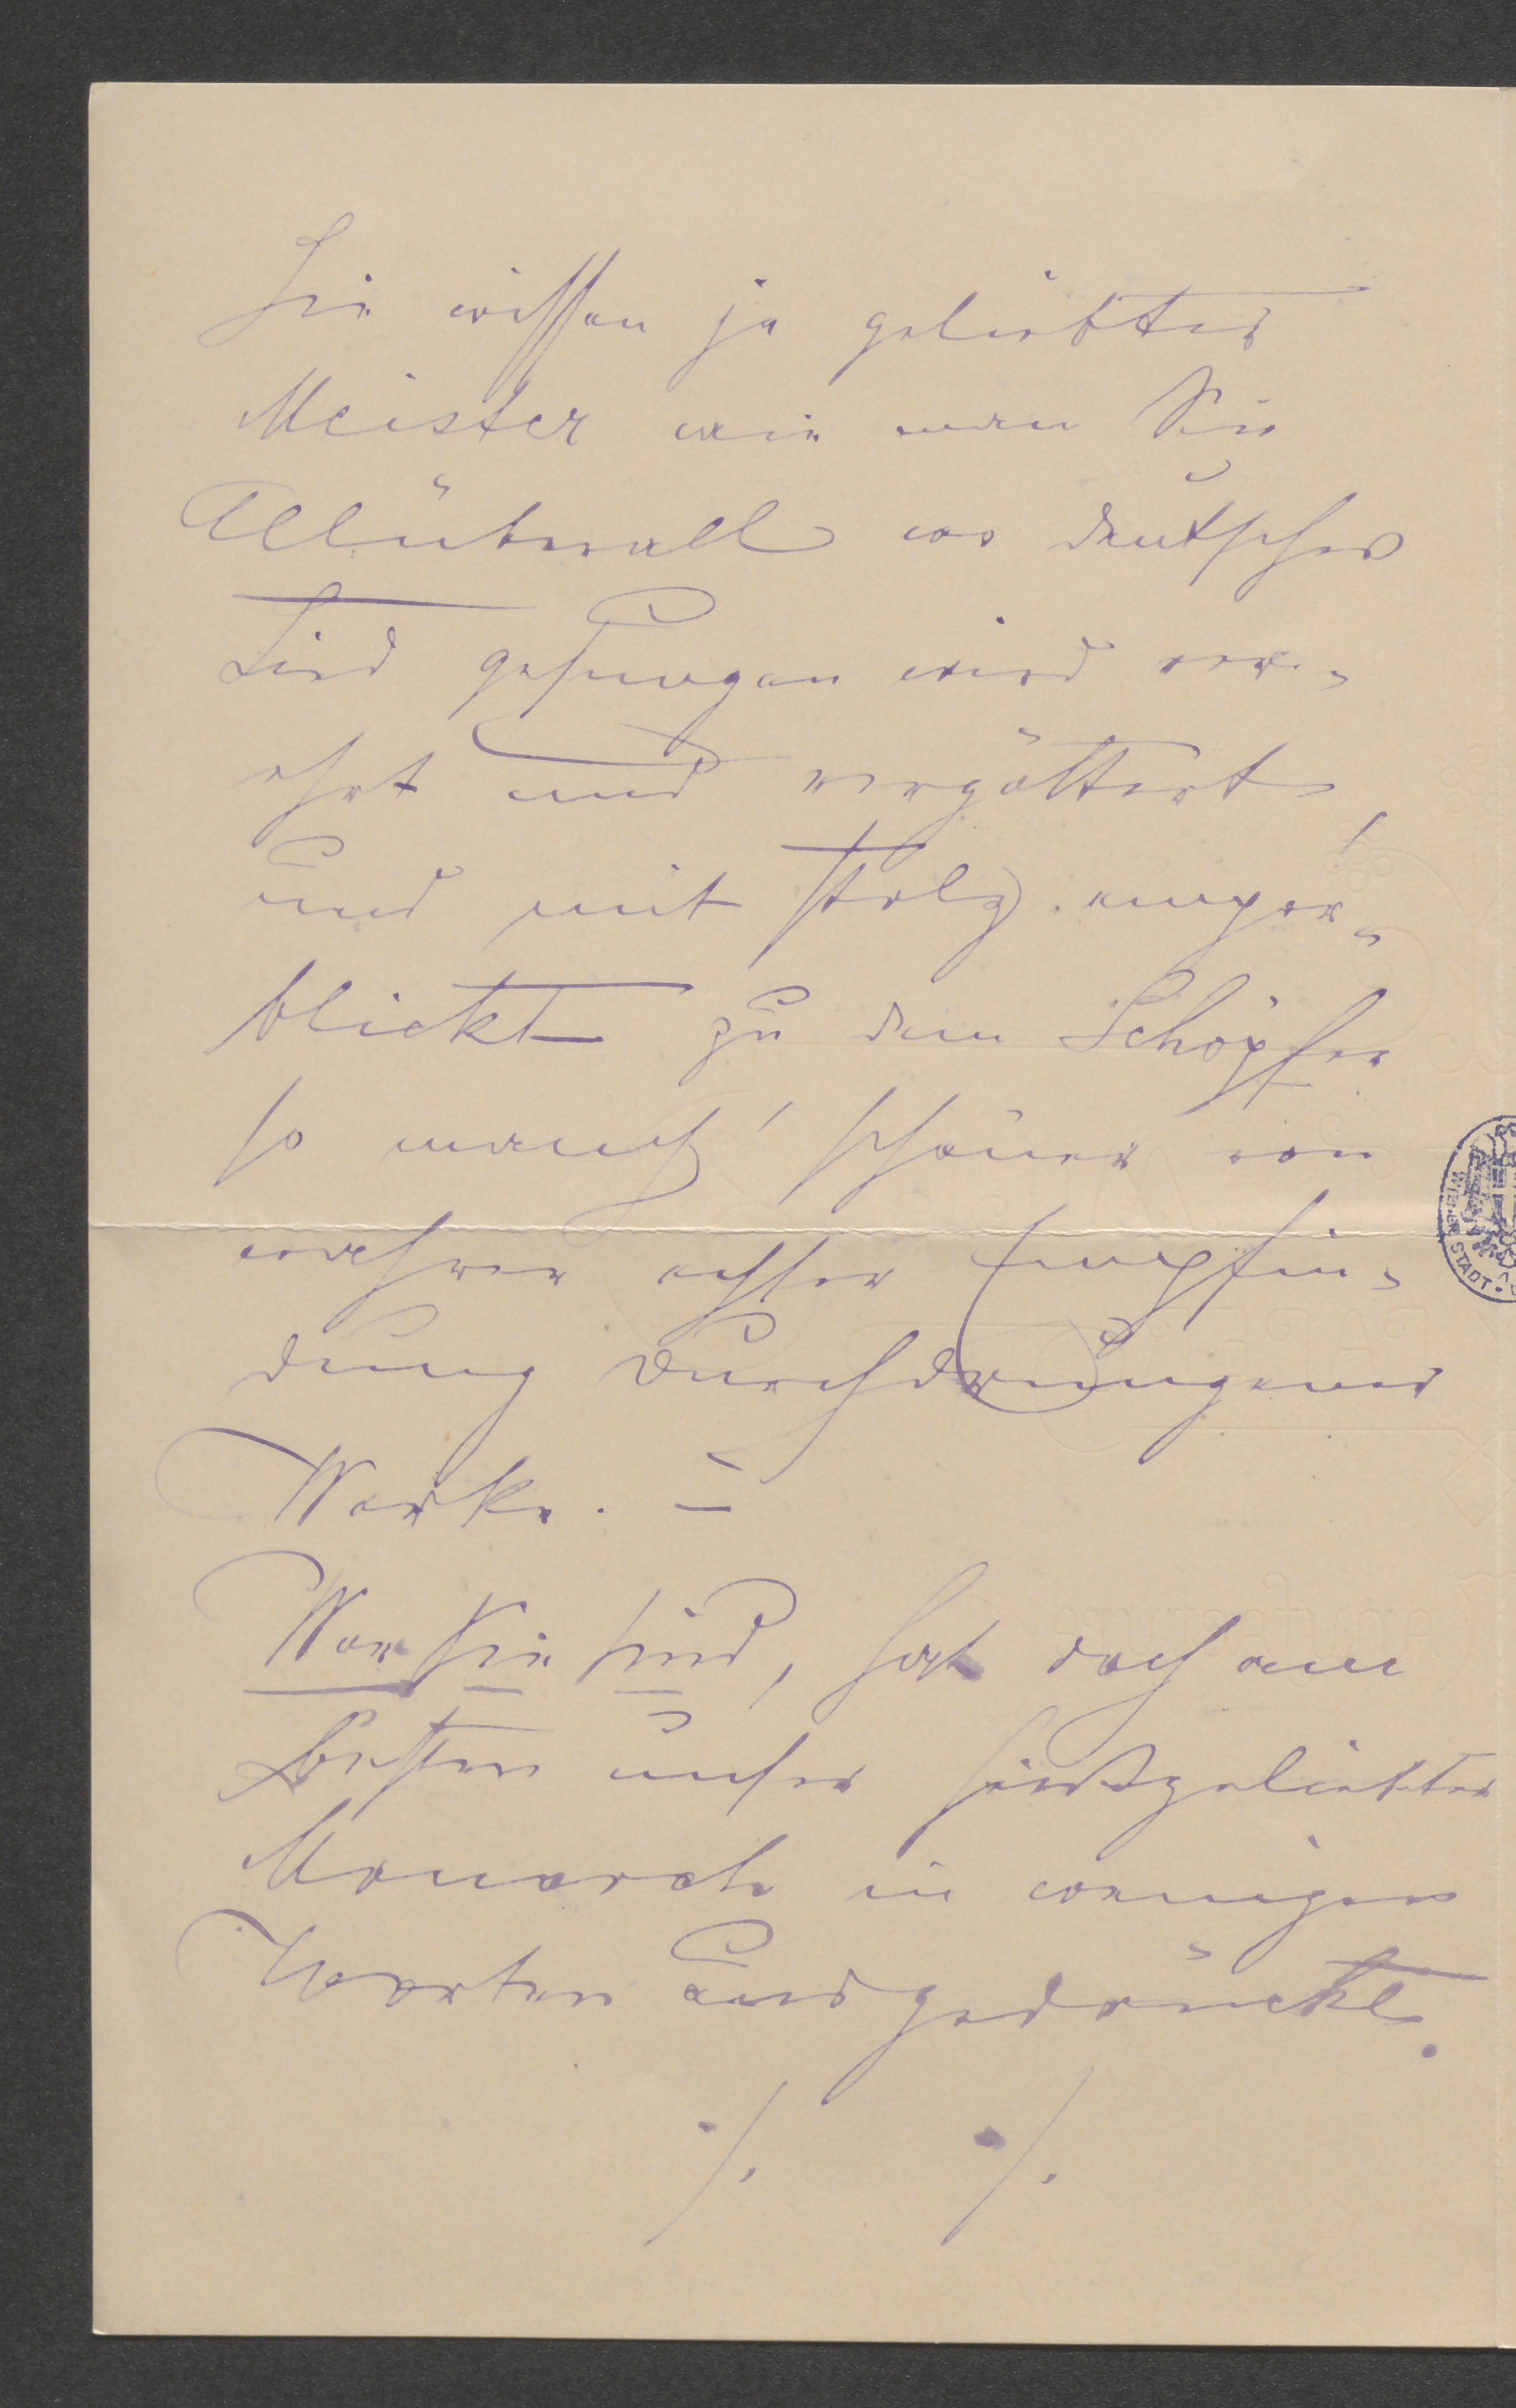 Sie wissen ja geliebter
Meister wie man Sie
Allüberall wo deutsches
Lied gesungen wird ver-
ehrt und vergöttert
und mit Stolz empor-
blickt zu dem Schöpfer
so manch' schöner von
wahrer echter Empfin-
dung durchdrungener
Werke. –
Wer Sie sind, hat doch am
Besten unser heißgeliebter
Monarch in wenigen
Worten ausgedrückt.
./. ./.
STADT